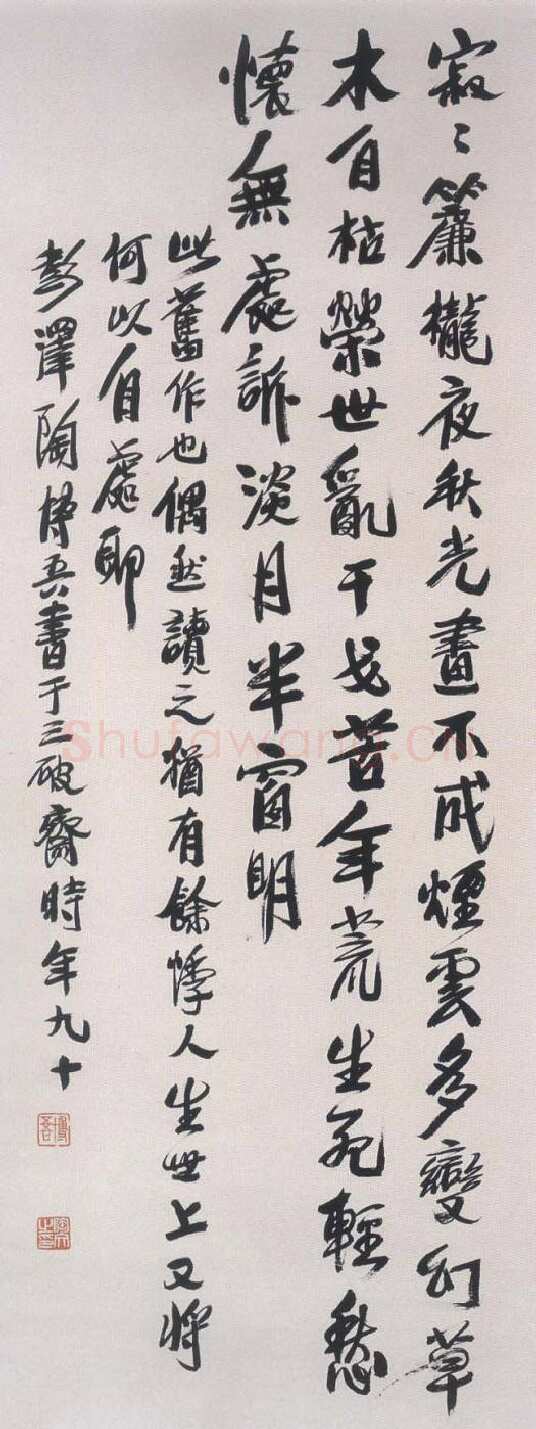 寂〻簾櫳夜秋光畫不成煙雲多變幻草
木自枯榮世亂干戈苦年荒生死輕愁
懷人無處訴淡月半窗明
此舊作也偶然讀之猶有餘悸人生世上又將
何以自處耶
彭澤陶博吾書于三破齋時年九十
Shufawang.cn